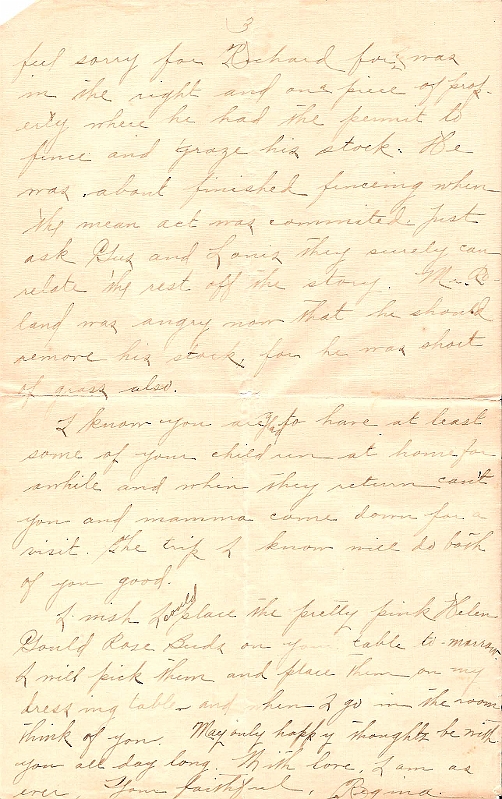 3
feel sorry for Richard for was
in the right and one piece of prop-
erty where he had the permit to
fence and graze his stock. He
was about finished fenceing when
the mean act was commited. Just
ask Gus and Louis they surely can
relate the rest off the story. Mr. Ro-
land was angry now that he should
remove his stock, for he was short
of grass also.
I know you are to have at least
some of your children at home for
awhile and when they return can't
you and mamma come down for a
visit. The trip I know will do both
of you good.
I wish I could place the pretty pink Helen
Gould Rose Buds on your table to-morrow
I will pick them and place them on my
dressing table and when I go in the room
think of you. May only happy thoughts be with
you all day long. With love, I am as
ever, Your faithful, Regina.